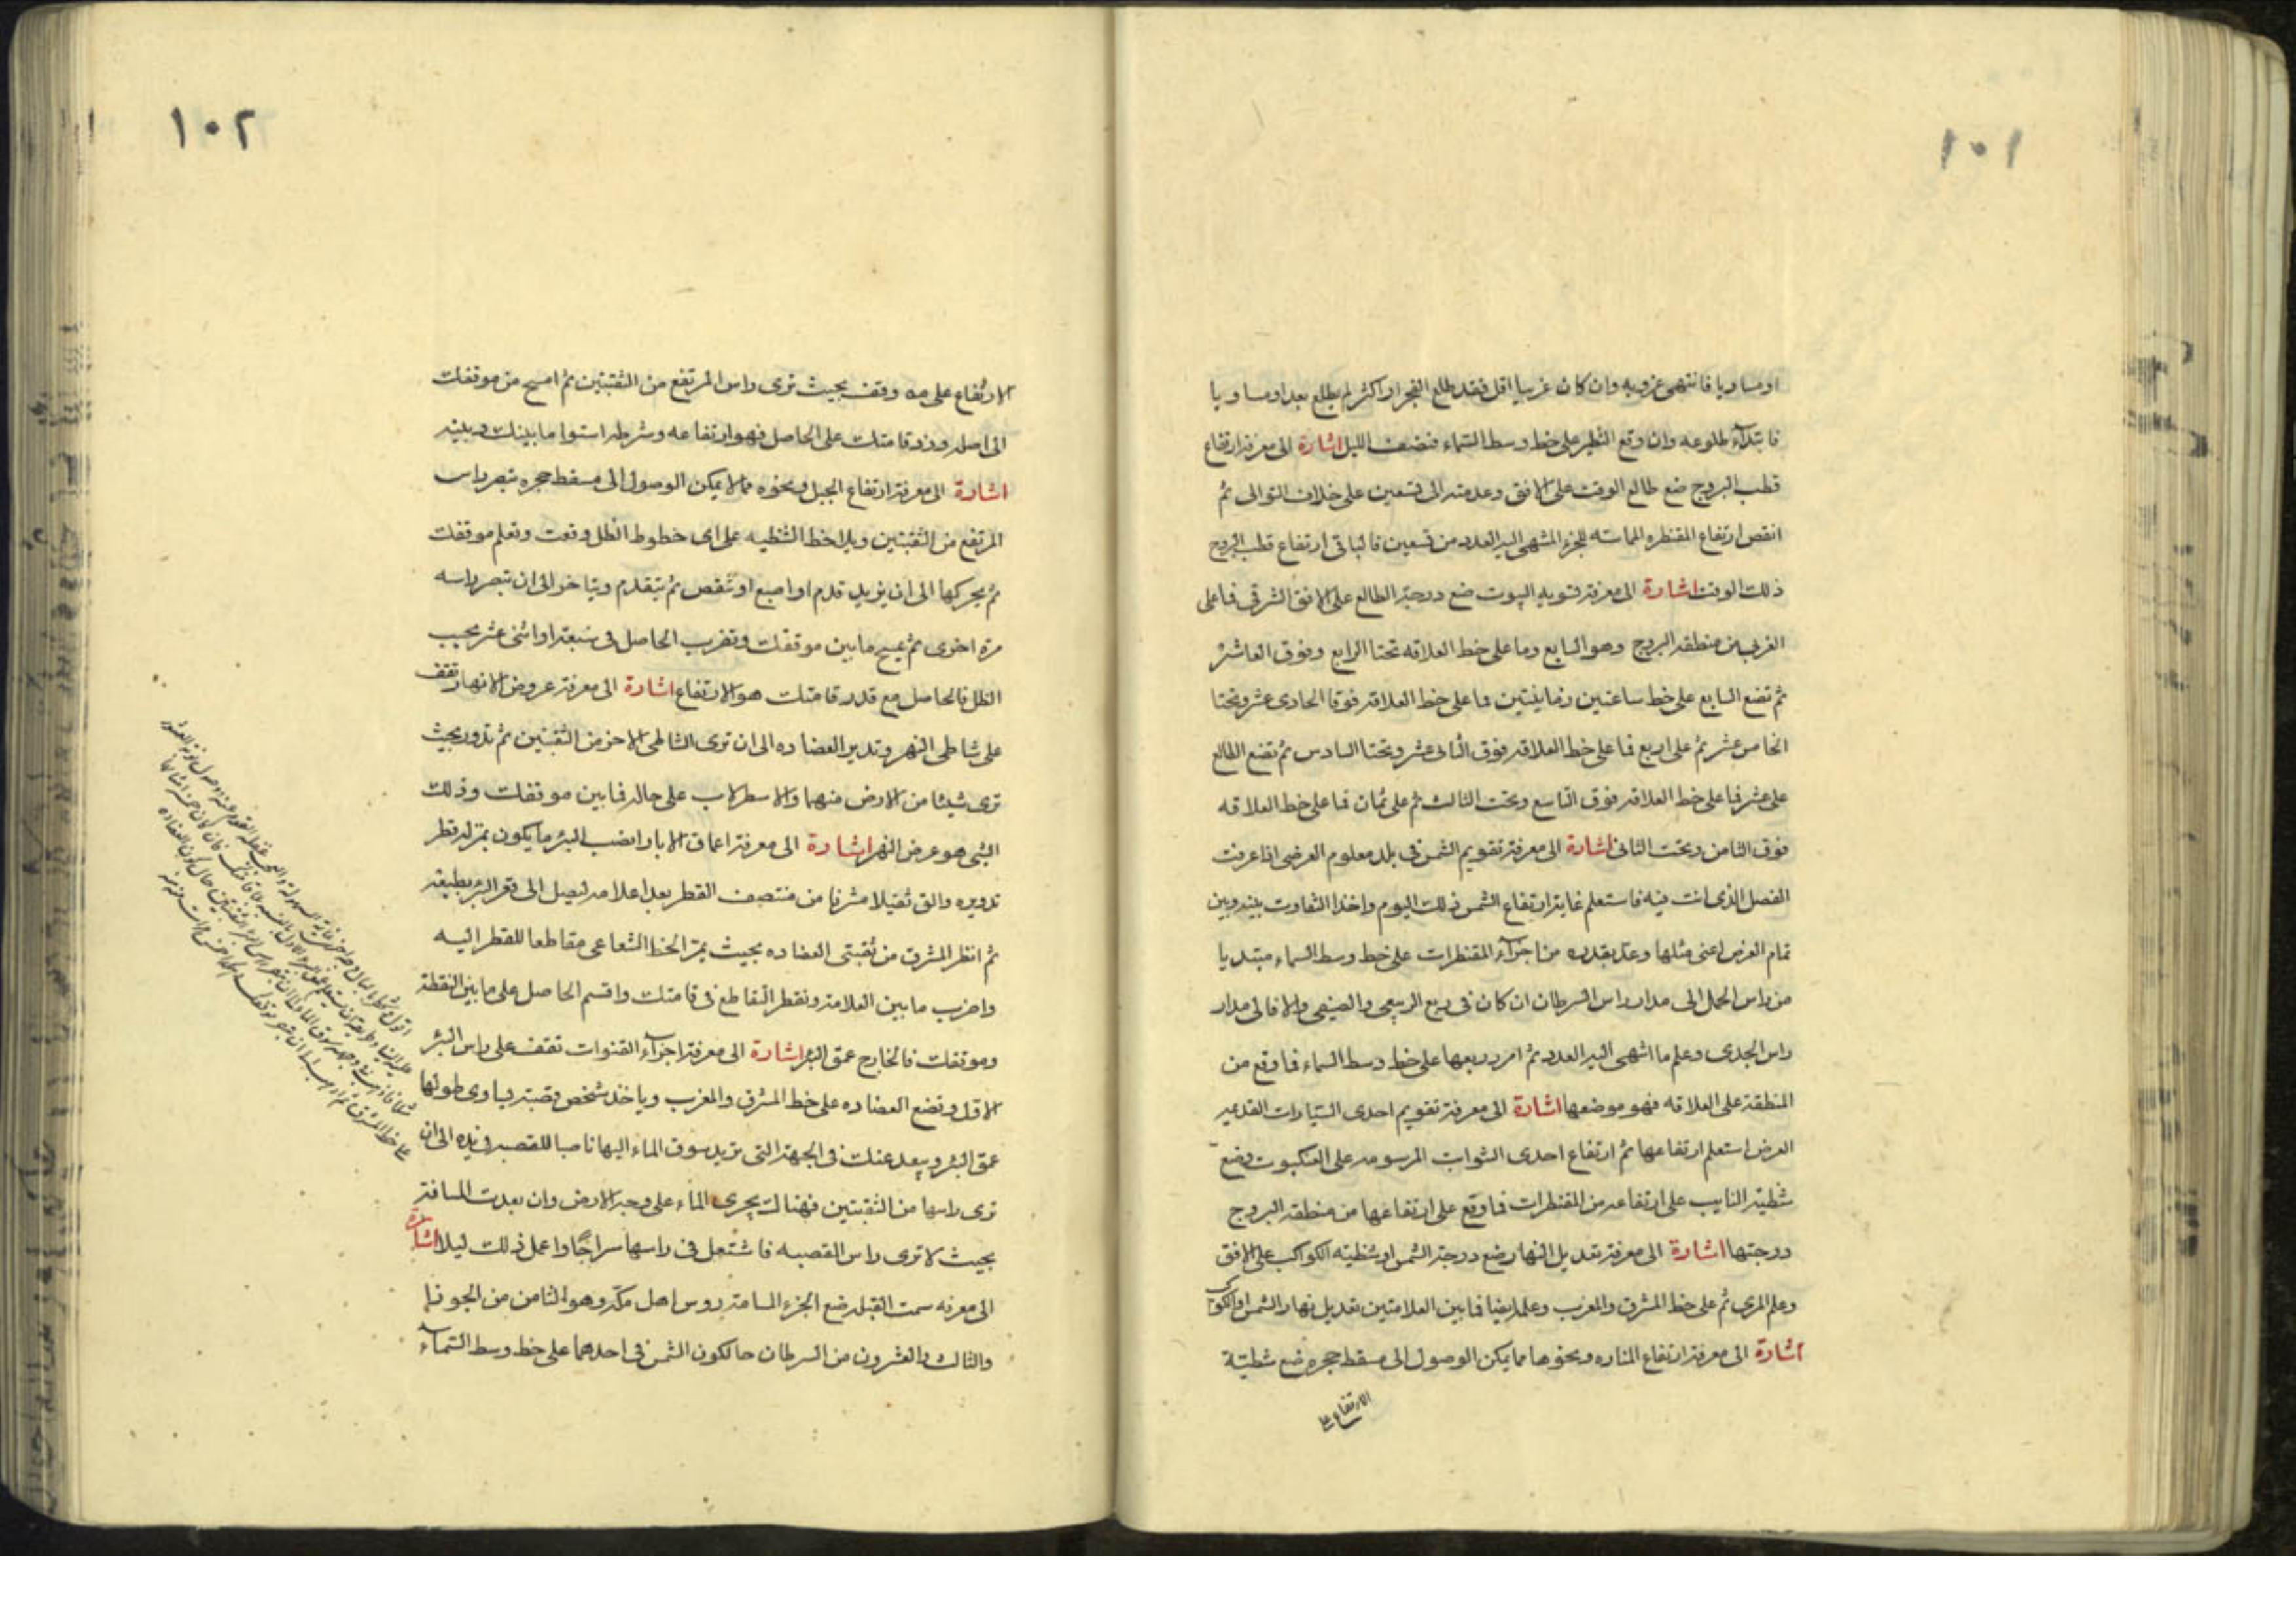 ١٠١
او مساويا فانتهى غروبه وان كان غربيا اقل فقد طلع الفجر او اكثر لم يطلع بعد او مساويا
فابتدآء طلوعه وان وقع النظير على خط وسط السماء فنصف الليل اشارة الى معرفة ارتفاع
قطب البروج ضع طالع الوقت على الافق وعد منه الى تسعين على خلاف التوالى ثم
انقص ارتفاع المقنطره المماسته للجزء المنتهى اليه العدد من تسعين فالباقى ارتفاع قطب البروج
ذلك الوقت اشارة الى معرفة تسويه البيوت ضع درجة الطالع على الافق الشرقى فما على
الغربى من منطقه البروج وهو السابع وما على خط العلاقه تحتا الرابع وفوق العاشر
ثم تضع السابع على خط ساعتين زمانيتين فما على خط العلاقه فوقا الحادى عشر وتحتا
الخامس عشر ثم على اربع فما على خط العلاقه فوق الثانى عشر وتحتا السادس ثم تضع الطالع
على عشر فما على خط العلاقه فوق التاسع وتحت الثالث ثم على ثمان فما على خط العلاقه
فوق الثامن وتحت الثانى اشارة الى معرفة تقويم الشمس فى بلد معلوم العرض اذا عرفت
الفصل الذى انت فيه فاستعلم غاية ارتفاع الشمس ذلك اليوم واخذ التفاوت بينه وبين
تمام العرض اعنى مثلها وعد بقدره من اجزآء المقنطرات على خط وسط السماء مبتديا
من راس الحمل الى مدار راس السرطان ان كان فى ربع الربيعى والصيفى والا فالى مدار
راس الجدى وعلم ما انتهى اليه العدد ثم امرر ربعها على خط وسط السماء فما وقع من
المنطقة على العلاقه فهو موضعها اشارة الى معرفة تقويم احدى السيارات القديم
العرض استعلم ارتفاعها ثم ارتفاع احدى الثوابت المرسومه على العنكبوت وضع
شظية النايب على ارتفاعه من المقنطرات فما وقع على ارتفاعها من منطقه البروج
درجتها اشارة الى معرفة تعديل النهار ضع درجة الشمس او شظيه الكواكب على الافق
وعلم المرى ثم على خط المشرق والمغرب وعلم ايضا فما بين العلامتين تعديل نهار الشمس او الكوكب
اشارة الى معرفة ارتفاع المناره ونحوها مما يمكن الوصول الى مسقط حجره ضع شظية
الارتفاع على
١٠٢
الارتفاع على مه وقف بحيث ترى راس المرتفع من الثقبتين ثم امسح من موقفك
الى اصله وزد قامتك على الحاصل فهو ارتفاعه وشرطه استوا ما بينك وبينه
اشارة الى معرفة ارتفاع الجبل ونحوه مما لا يمكن الوصول الى مسقط حجره تبصر راس
المرتفع من الثقبتين ويلاحظ الشظيه على اى خطوط الظل وقعت وتعلم موقفك
ثم يحركها الى ان يزيد قدم او اصبع او تنقص ثم يتقدم ويتاخر الى ان تبصر راسه
مرة اخرى ثم يمسح ما بين موقفك وتضرب الحاصل فى سبعة او اثنى عشر بحسب
الظل فالحاصل مع قدر قامتك هو الارتفاع اشارة الى معرفة عروض الانهار تقف
على شاطى النهر وتدير العضاده الى ان ترى الشاطى الاخر من الثقبتين ثم تدور بحيث
ترى شيئا من الارض منهما والاسطرلاب على حاله فما بين موقفك وذلك
الشى هو عرض النهر اشارة الى معرفة اعماق الابار انصب البئر ما يكون بمنزلة قطر
تدويره والق ثقيلا مشرفا من منتصف القطر بعد اعلامه ليصل الى قعر البئر بطبعه
ثم انظر المشرق من ثقبتى العضاده بحيث يمر الخط الشعاعى مقاطعا للقطر اليه
واضرب ما بين العلامة ونقطه التقاطع فى قامتك واقسم الحاصل على ما بين النقطة
وموقفك فالخارج عمق البئر اشارة الى معرفة اجرآء القنوات تقف على راس البئر
الاول وتضع العضاده على خط المشرق والمغرب وياخذ شخص قصبة يساوى طولها
عمق البئر ويبعد عنك فى الجهة التى تريد سوق الماء اليها ناصبا للقصبه فى يده الى ان
ترى راسها من الثقبتين فهنالك يجرى الماء على وجه الارض وان بعدت المسافة
بحيث لا ترى راس القصبه فاشتعل فى راسها سراجا واعمل ذلك ليلا اشارة
الى معرفه سمت القبله ضع الجزء المسامته روس اهل مكة وهو الثامن من الجوزا
والثالث والعشرون من السرطان حالكون الشمس فى احدهما على خط وسط السمآء